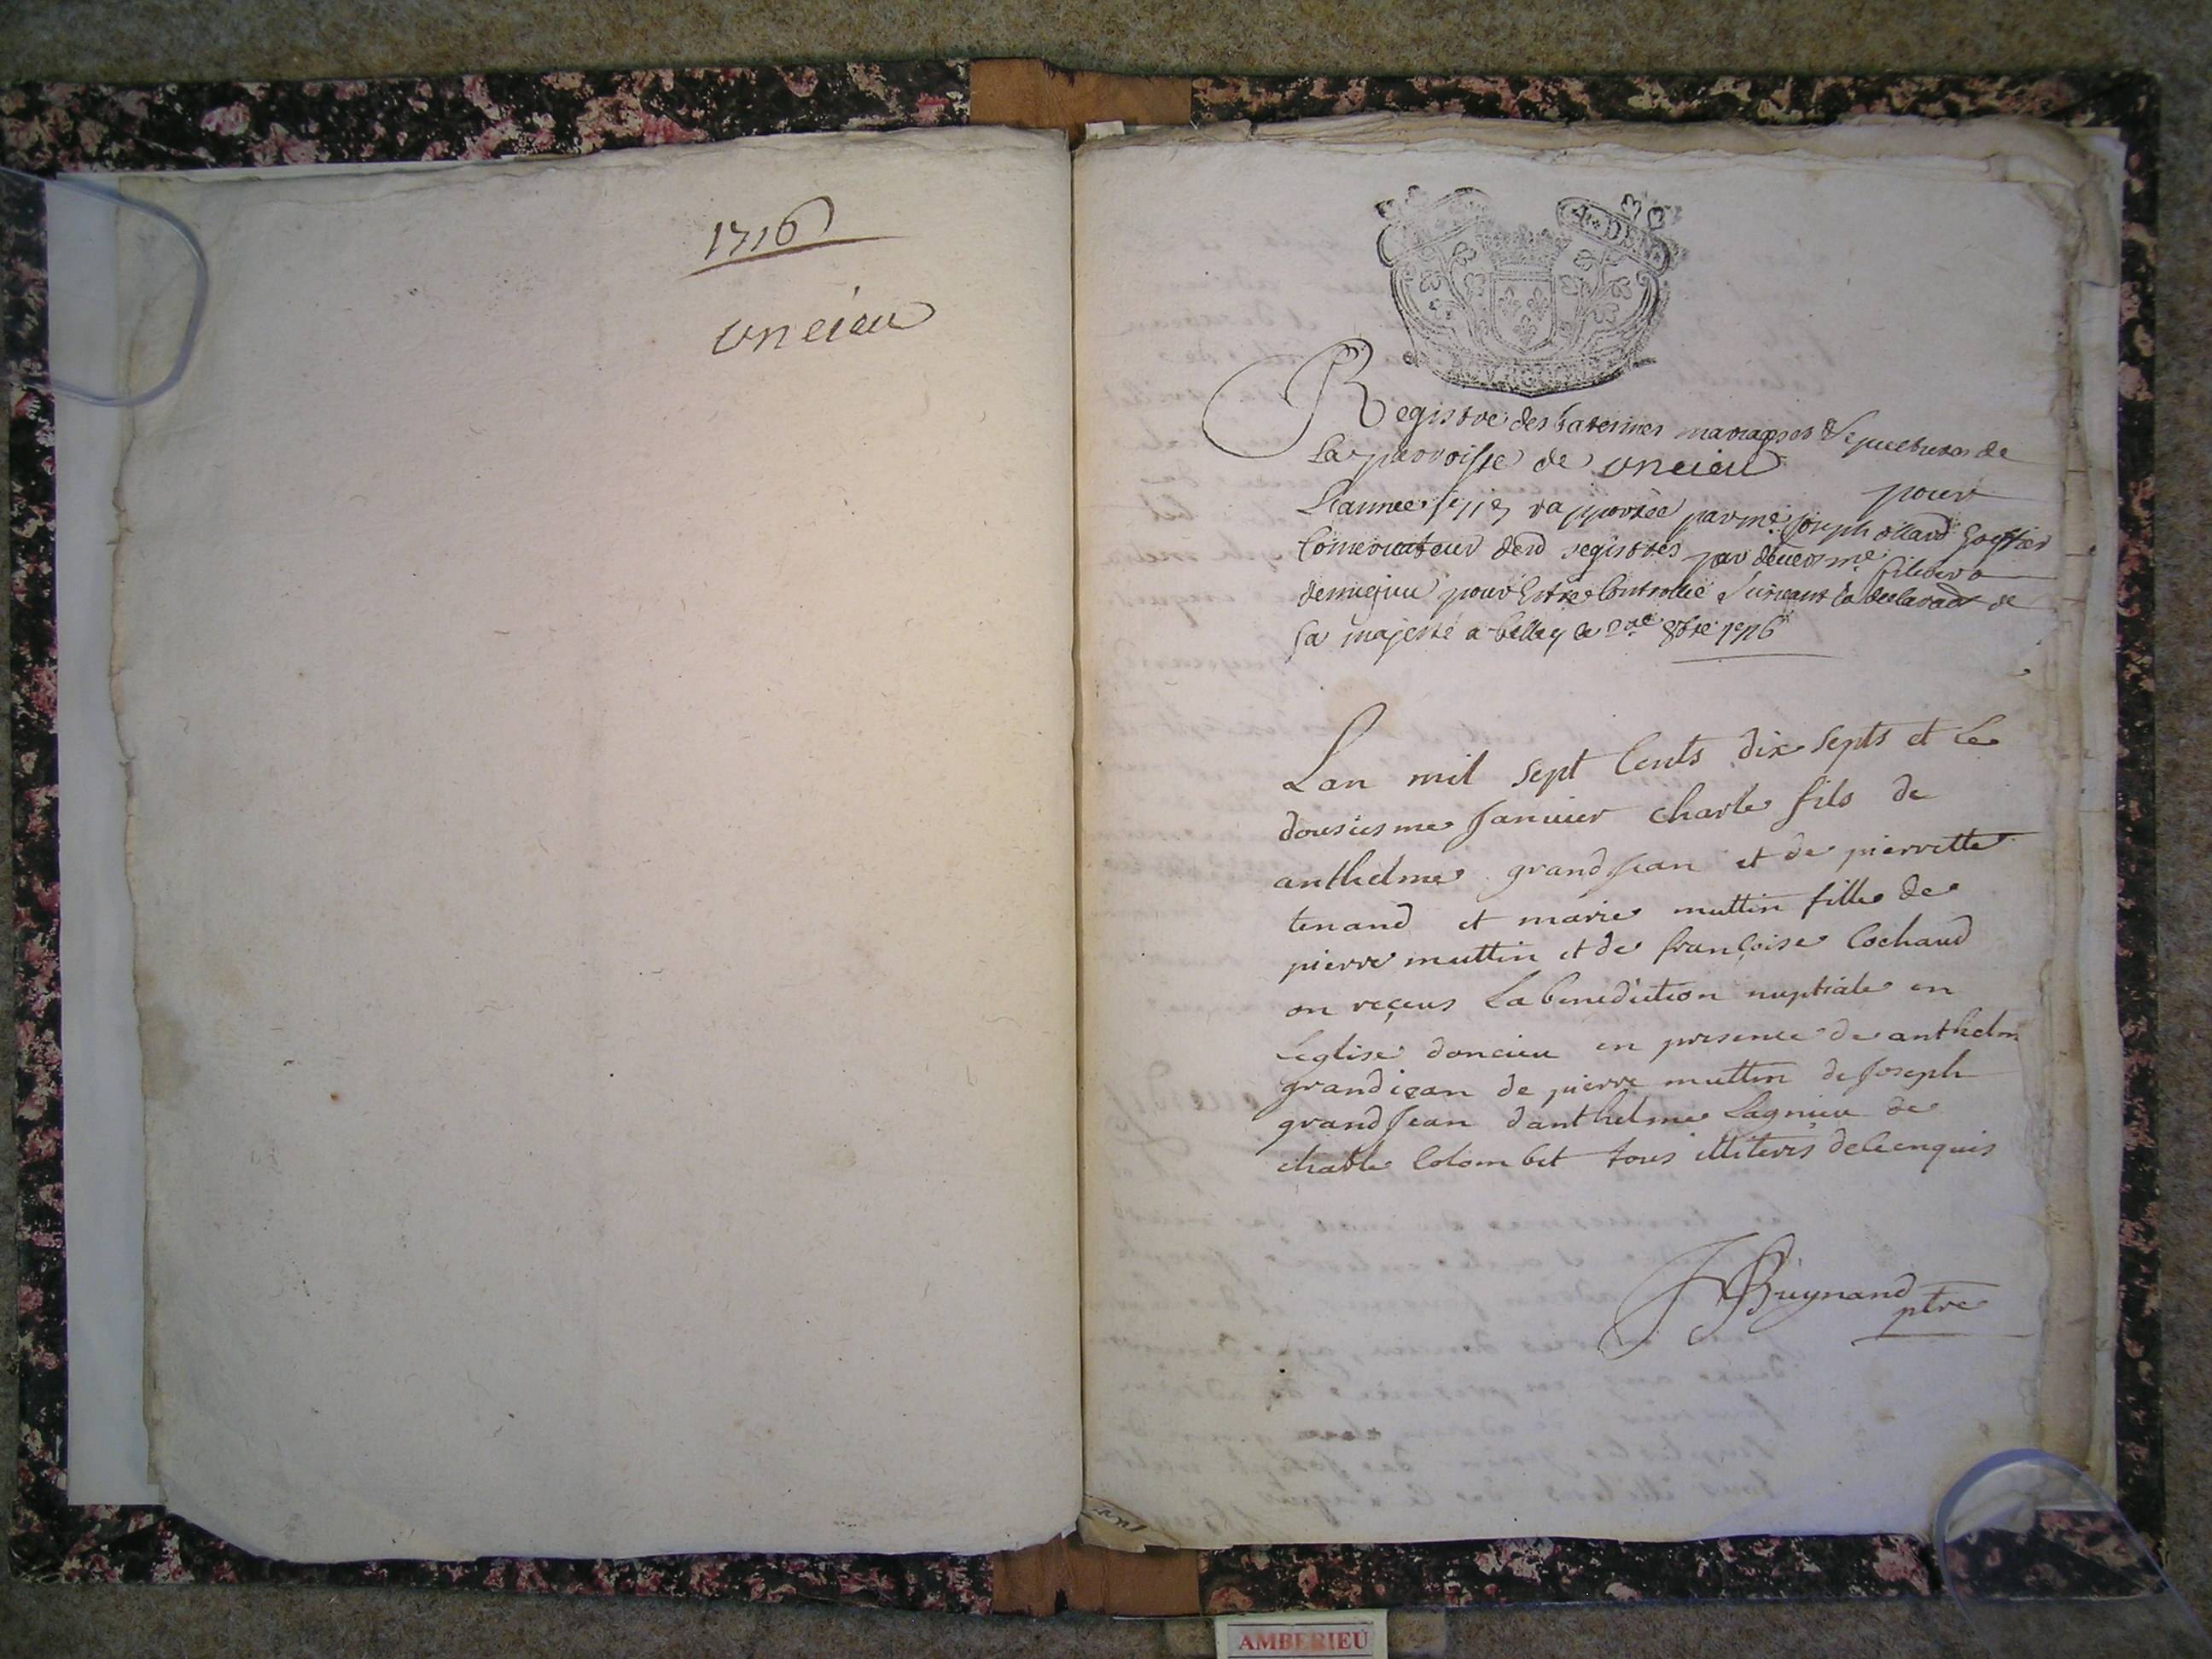 1716
oncieu
A * DEN *
Registre des batesmes mariages & Sepultures de
La parroisse de oncieu pour
L'annee rapportée par me Joseph ollard Greffier
Conservateur desd registres par devers me
demugieu pour Estre Controllé Suivant la declaraōn de
Sa majesté a belley le 8bre 1716
Lan mil sept Cents dix septs et le
dousiesme Januier charle fils de
anthelme grand Jean et de pierrette
tenand et marie muttin fille de
pierre muttin et de françoise Cochaud
on reçeus La benediction nuptiale en
Leglise doncieu en presence de anthelm
grandiean de pierre muttin de Joseph
grand Jean danthelme Lagnieu de
charle Colombet tous illiterés de ce enquis
J Buynand
ptre
AMBERIEU